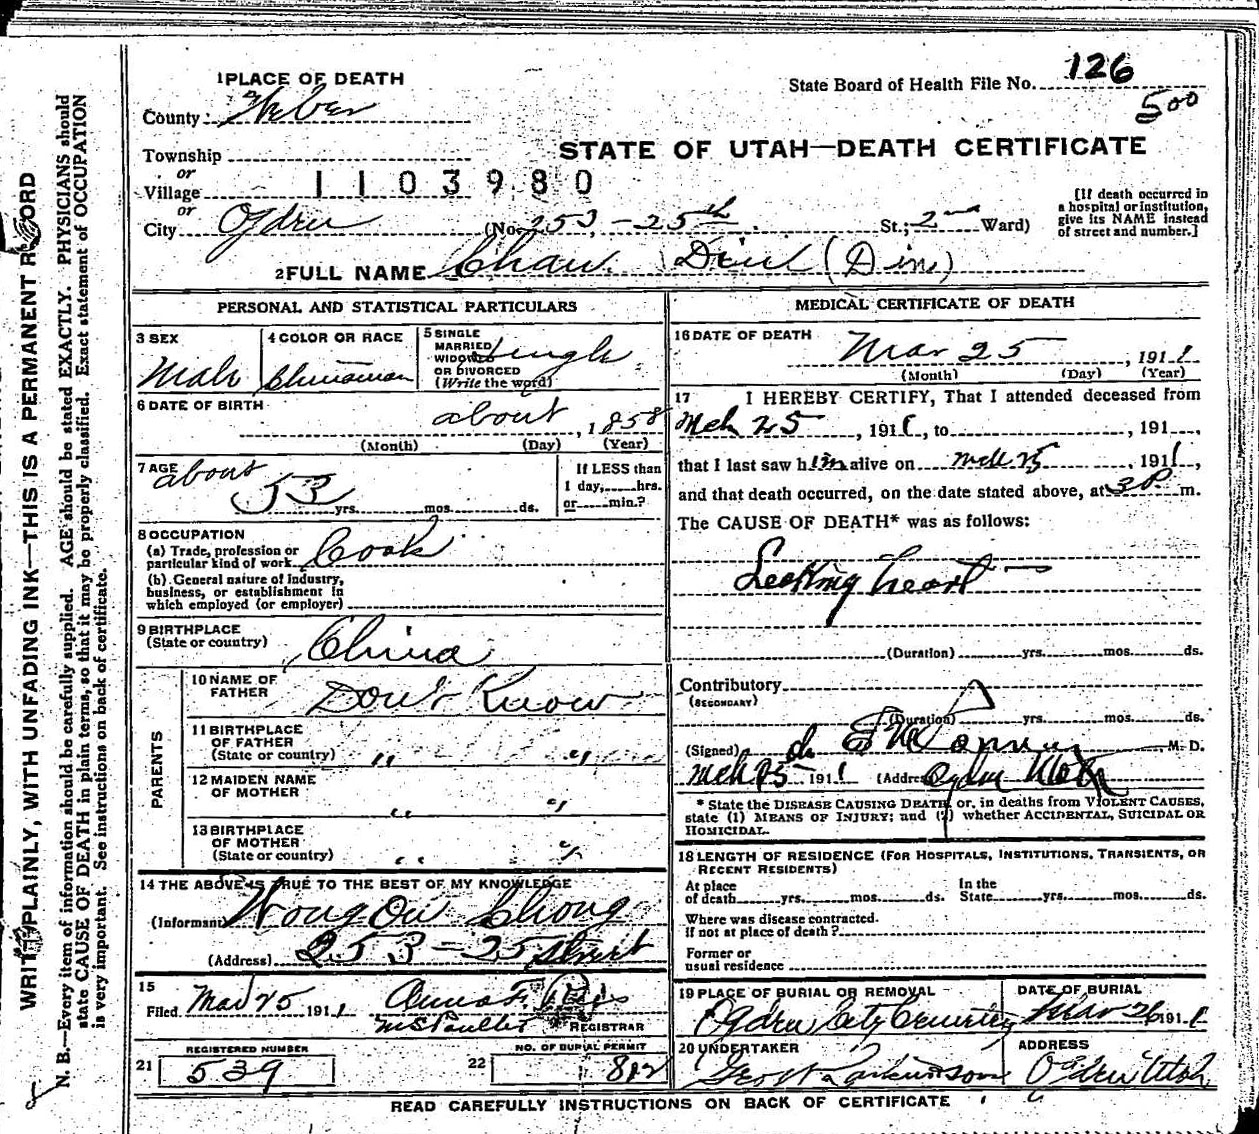 1 PLACE OF DEATH
State Board of Health File No. 126
500
County Weber
STATE OF UTAH—DEATH CERTIFICATE
Township
or
Village
1103980
or
City Ogden (No. 253 - 25th St.; 2nd Ward)
[If death occurred in
a hospital or institution,
give its NAME instead
of street and number.]
2 FULL NAME Chaw (Din)
PERSONAL AND STATISTICAL PARTICULARS
3 SEX
Male
4 COLOR OR RACE
Chinaman
5 SINGLE
MARRIED
WIDOWED
OR DIVORCED
(Write the word)
Single
6 DATE OF BIRTH
about , 1858
(Month) (Day) (Year)
7 AGE
about
53 yrs. mos. ds.
If LESS than
1 day, hrs.
or min.?
8 OCCUPATION
(a) Trade, profession or
particular kind of work Cook
(b) General nature of industry,
business, or establishment in
which employed (or employer)
9 BIRTHPLACE
(State or country) China
PARENTS
10 NAME OF
FATHER Don't Know
11 BIRTHPLACE
OF FATHER
(State or country) " "
12 MAIDEN NAME
OF MOTHER " "
13 BIRTHPLACE
OF MOTHER
(State or country) " "
14 THE ABOVE IS TRUE TO THE BEST OF MY KNOWLEDGE
(Informant) Wong Chong
(Address) 253 - 25 Street
15
Filed Mar 25 1911 Anna F.
REGISTRAR
REGISTERED NUMBER
21 539
NO. OF BURIAL PERMIT
22 812
MEDICAL CERTIFICATE OF DEATH
16 DATE OF DEATH
Mar 25 , 1911
(Month) (Day) (Year)
17 I HEREBY CERTIFY, That I attended deceased from
Mch 25 , 1911, to , 191 ,
that I last saw him alive on Mch 25 , 1911,
and that death occurred, on the date stated above, at 3 P m.
The CAUSE OF DEATH* was as follows:
Leaking heart
(Duration) yrs. mos. ds.
Contributory
(SECONDARY)
(Duration) yrs. mos. ds.
(Signed) M. D.
Mch 25 1911 (Address) Ogden Utah
* State the DISEASE CAUSING DEATH, or, in deaths from VIOLENT CAUSES,
state (1) MEANS OF INJURY; and (2) whether ACCIDENTAL, SUICIDAL OR
HOMICIDAL.
18 LENGTH OF RESIDENCE (FOR HOSPITALS, INSTITUTIONS, TRANSIENTS, OR
RECENT RESIDENTS)
At place
of death yrs. mos. ds.
In the
State yrs. mos. ds.
Where was disease contracted.
If not at place of death?
Former or
usual residence
19 PLACE OF BURIAL OR REMOVAL
Ogden City Cemetery
DATE OF BURIAL
Mar 26 1911
20 UNDERTAKER
Geo W Larkin & son
ADDRESS
Ogden Utah
READ CAREFULLY INSTRUCTIONS ON BACK OF CERTIFICATE
WRITE PLAINLY, WITH UNFADING INK—THIS IS A PERMANENT RECORD
N. B.—Every item of information should be carefully supplied. AGE should be stated EXACTLY. PHYSICIANS should
state CAUSE OF DEATH in plain terms, so that it may be properly classified. Exact statement of OCCUPATION
is very important. See instructions on back of certificate.